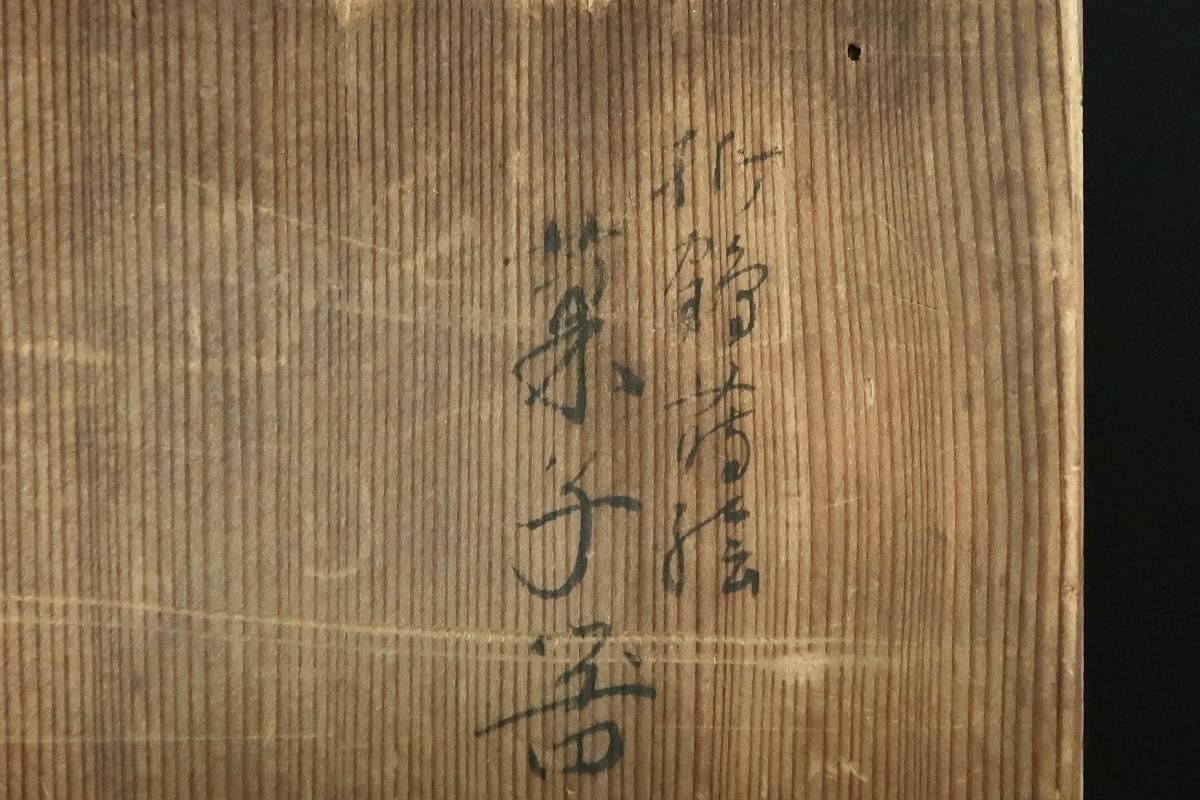 折鶴蒔絵
菓子器